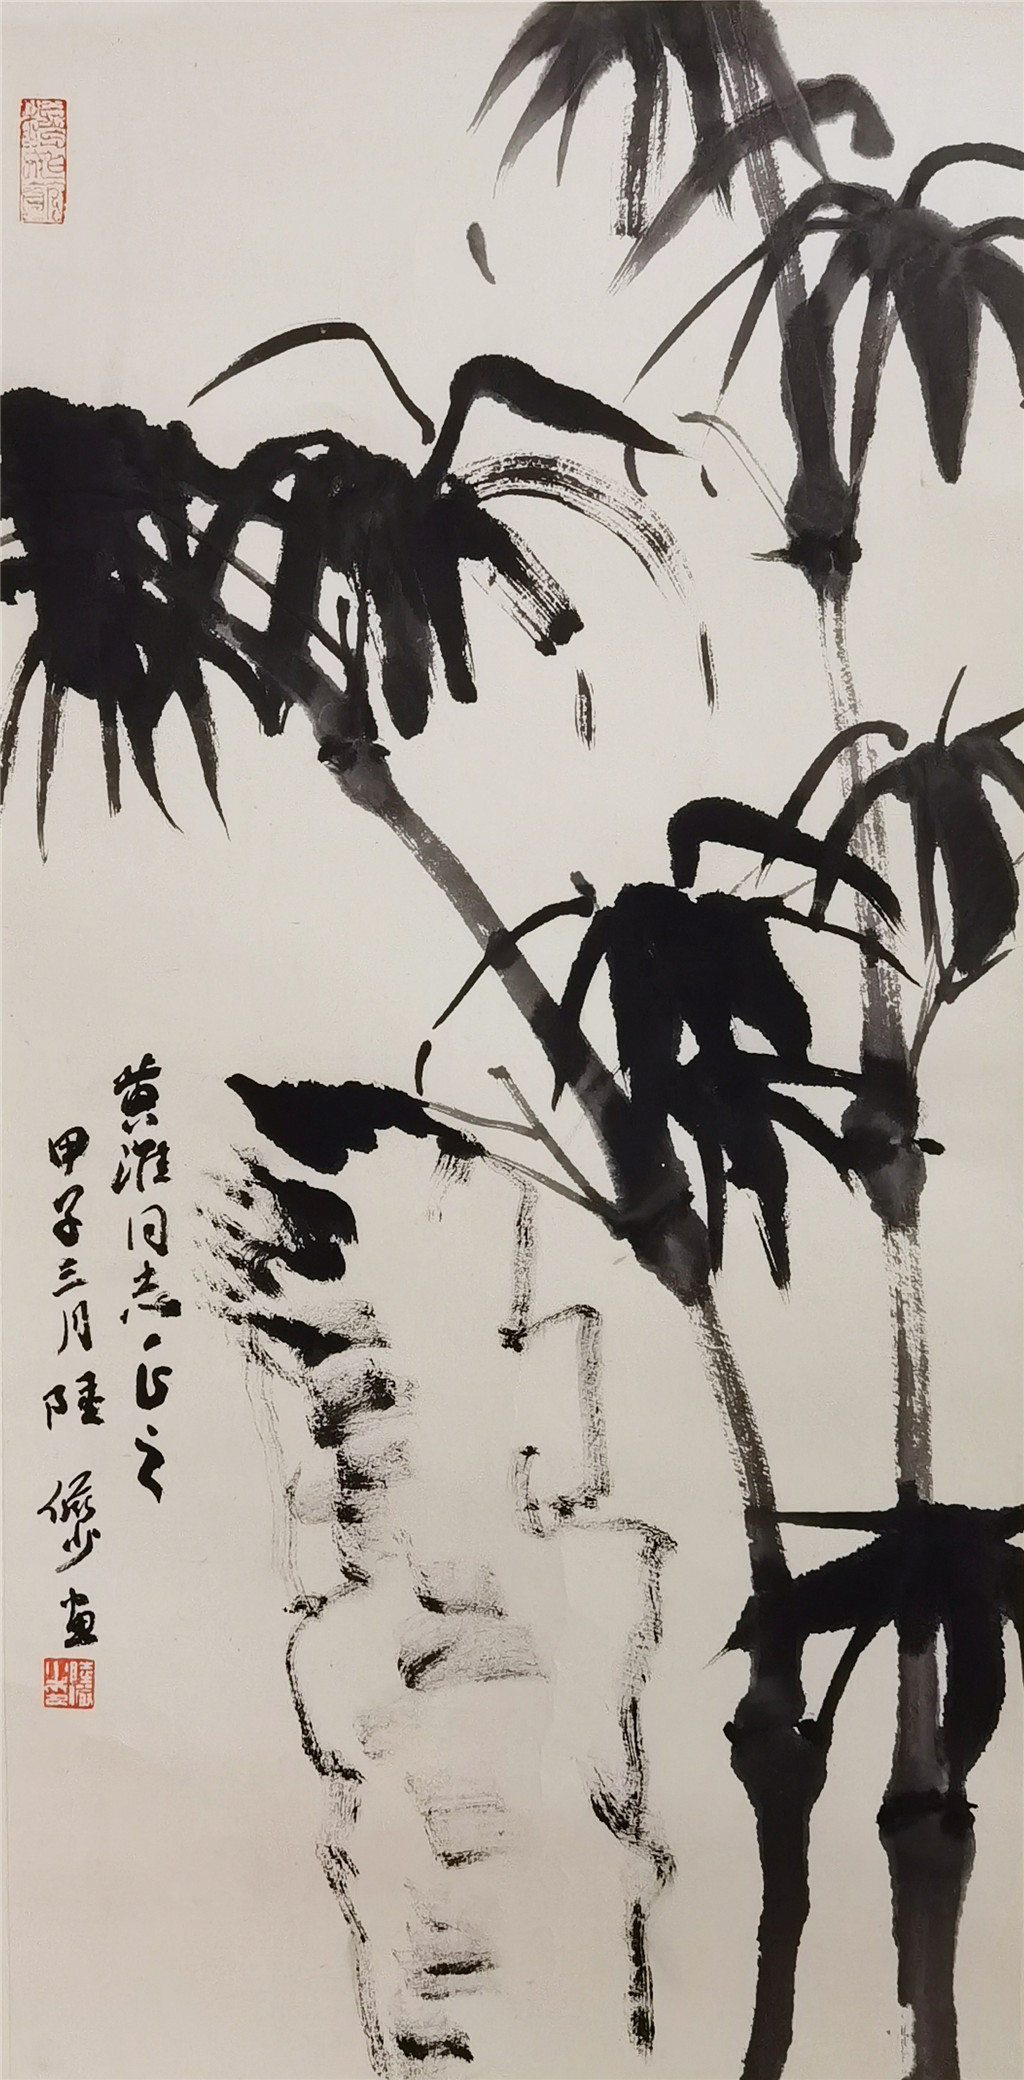 黄淮同志正之
甲子三月陸儼少畫